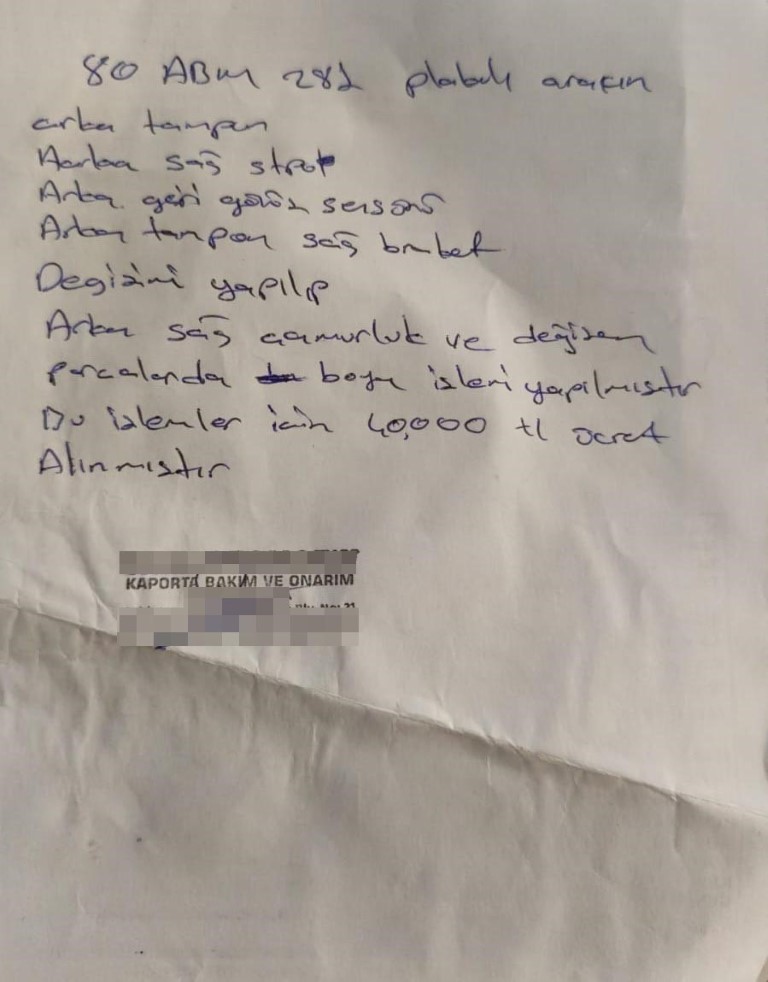 80 ABM 281 plakalı aracın
arka tampon
Aarka sağ strop
Arka geri görüş sensörü
Arka tampon sağ braket
Degizimi yapılıp
Arka sağ çamurluk ve değizen
parcalarda boya izleri yapılmıstır
Bu izlemler icin 40,000 tl ücret
Alınmıstır
KAPORTA BAKIM VE ONARIM